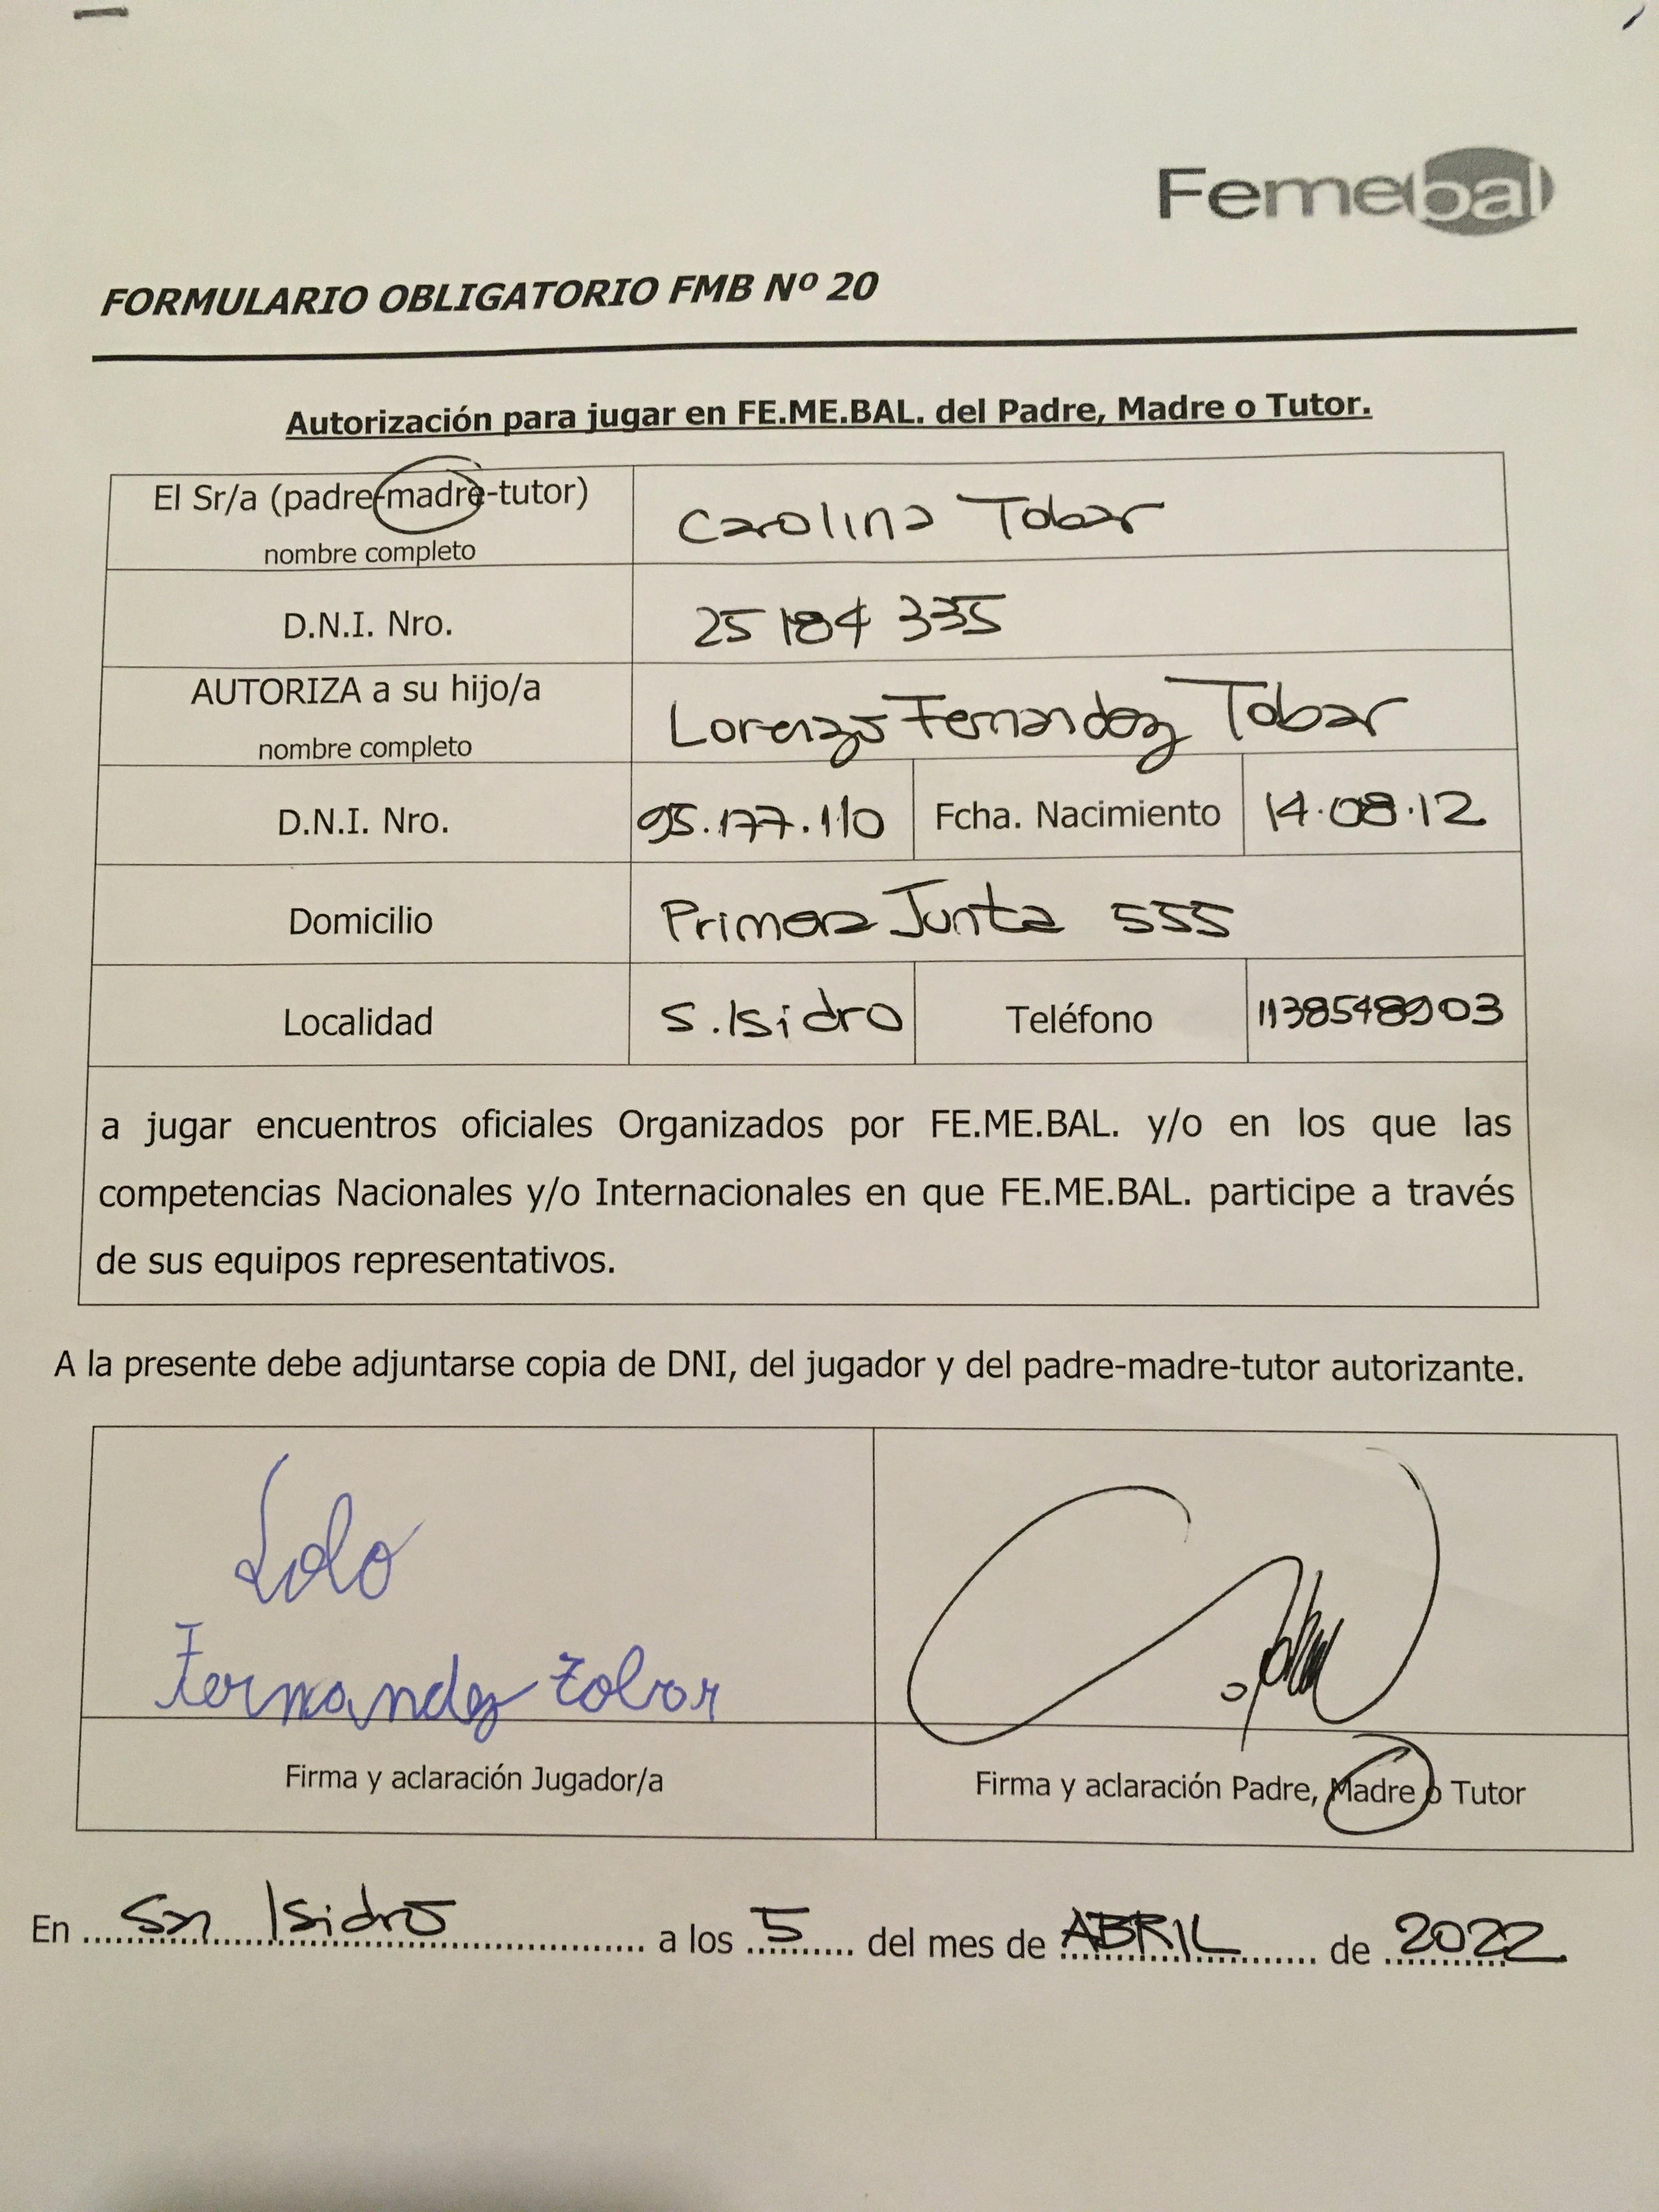 Femebal
FORMULARIO OBLIGATORIO FMB Nº 20
Autorización para jugar en FE.ME.BAL. del Padre, Madre o Tutor.
El Sr/a (padre-madre-tutor)
nombre completo
Carolina Tobar
D.N.I. Nro.
25 184 335
AUTORIZA a su hijo/a
nombre completo
Lorenzo Fernandez Tobar
D.N.I. Nro.
95.177.110
Fcha. Nacimiento
14.08.12
Domicilio
Primera Junta 555
Localidad
S. Isidro
Teléfono
1138548903
a jugar encuentros oficiales Organizados por FE.ME.BAL. y/o en los que las
competencias Nacionales y/o Internacionales en que FE.ME.BAL. participe a través
de sus equipos representativos.
A la presente debe adjuntarse copia de DNI, del jugador y del padre-madre-tutor autorizante.
Lolo
Fernandez Tobar
Firma y aclaración Jugador/a
Firma y aclaración Padre, Madre o Tutor
En Sn Isidro a los 5 del mes de ABRIL de 2022